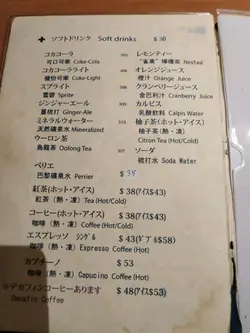 ✚ ソフトドリンク Soft drinks $30
コカコーラ
可口可樂 Coke-Cola
コカコーラライト
健怡可樂 Coke-Light
スプライト
雪碧 Sprite
ジンジャーエール
薑橋打 Ginger-Ale
ミネラルウォーター
天然礦泉水 Mineralized
ウーロン茶
烏龍茶 Oolong Tea
レモンティー
"雀巢" 檸檬茶 Nested
オレンジジュース
橙汁 Orange Juice
クランベリージュース
金巴利汁 Cranberry Juice
カルピス
乳酸飲料 Calpis Water
柚子茶(ホット・アイス)
柚子茶 (熱・凍)
Citron Tea (Hot/Cold)
ソーダ
梳打水 Soda Water
ペリエ
巴黎礦泉水 Perrier $35
紅茶(ホット・アイス) $38(アイス$43)
紅茶 (熱・凍) Tea (Hot/Cold)
コーヒー(ホット・アイス) $38(アイス$43)
咖啡 (熱・凍) Coffee (Hot/Cold)
エスプレッソ シングル $43(ダブル$58)
咖啡 (熱・凍) Expresso Coffee (Hot)
カプチーノ $53
咖啡 (熱・凍) Capucino Coffee (Hot)
※デカフィンコーヒーあります $48(アイス$53)
Decafin Coffee